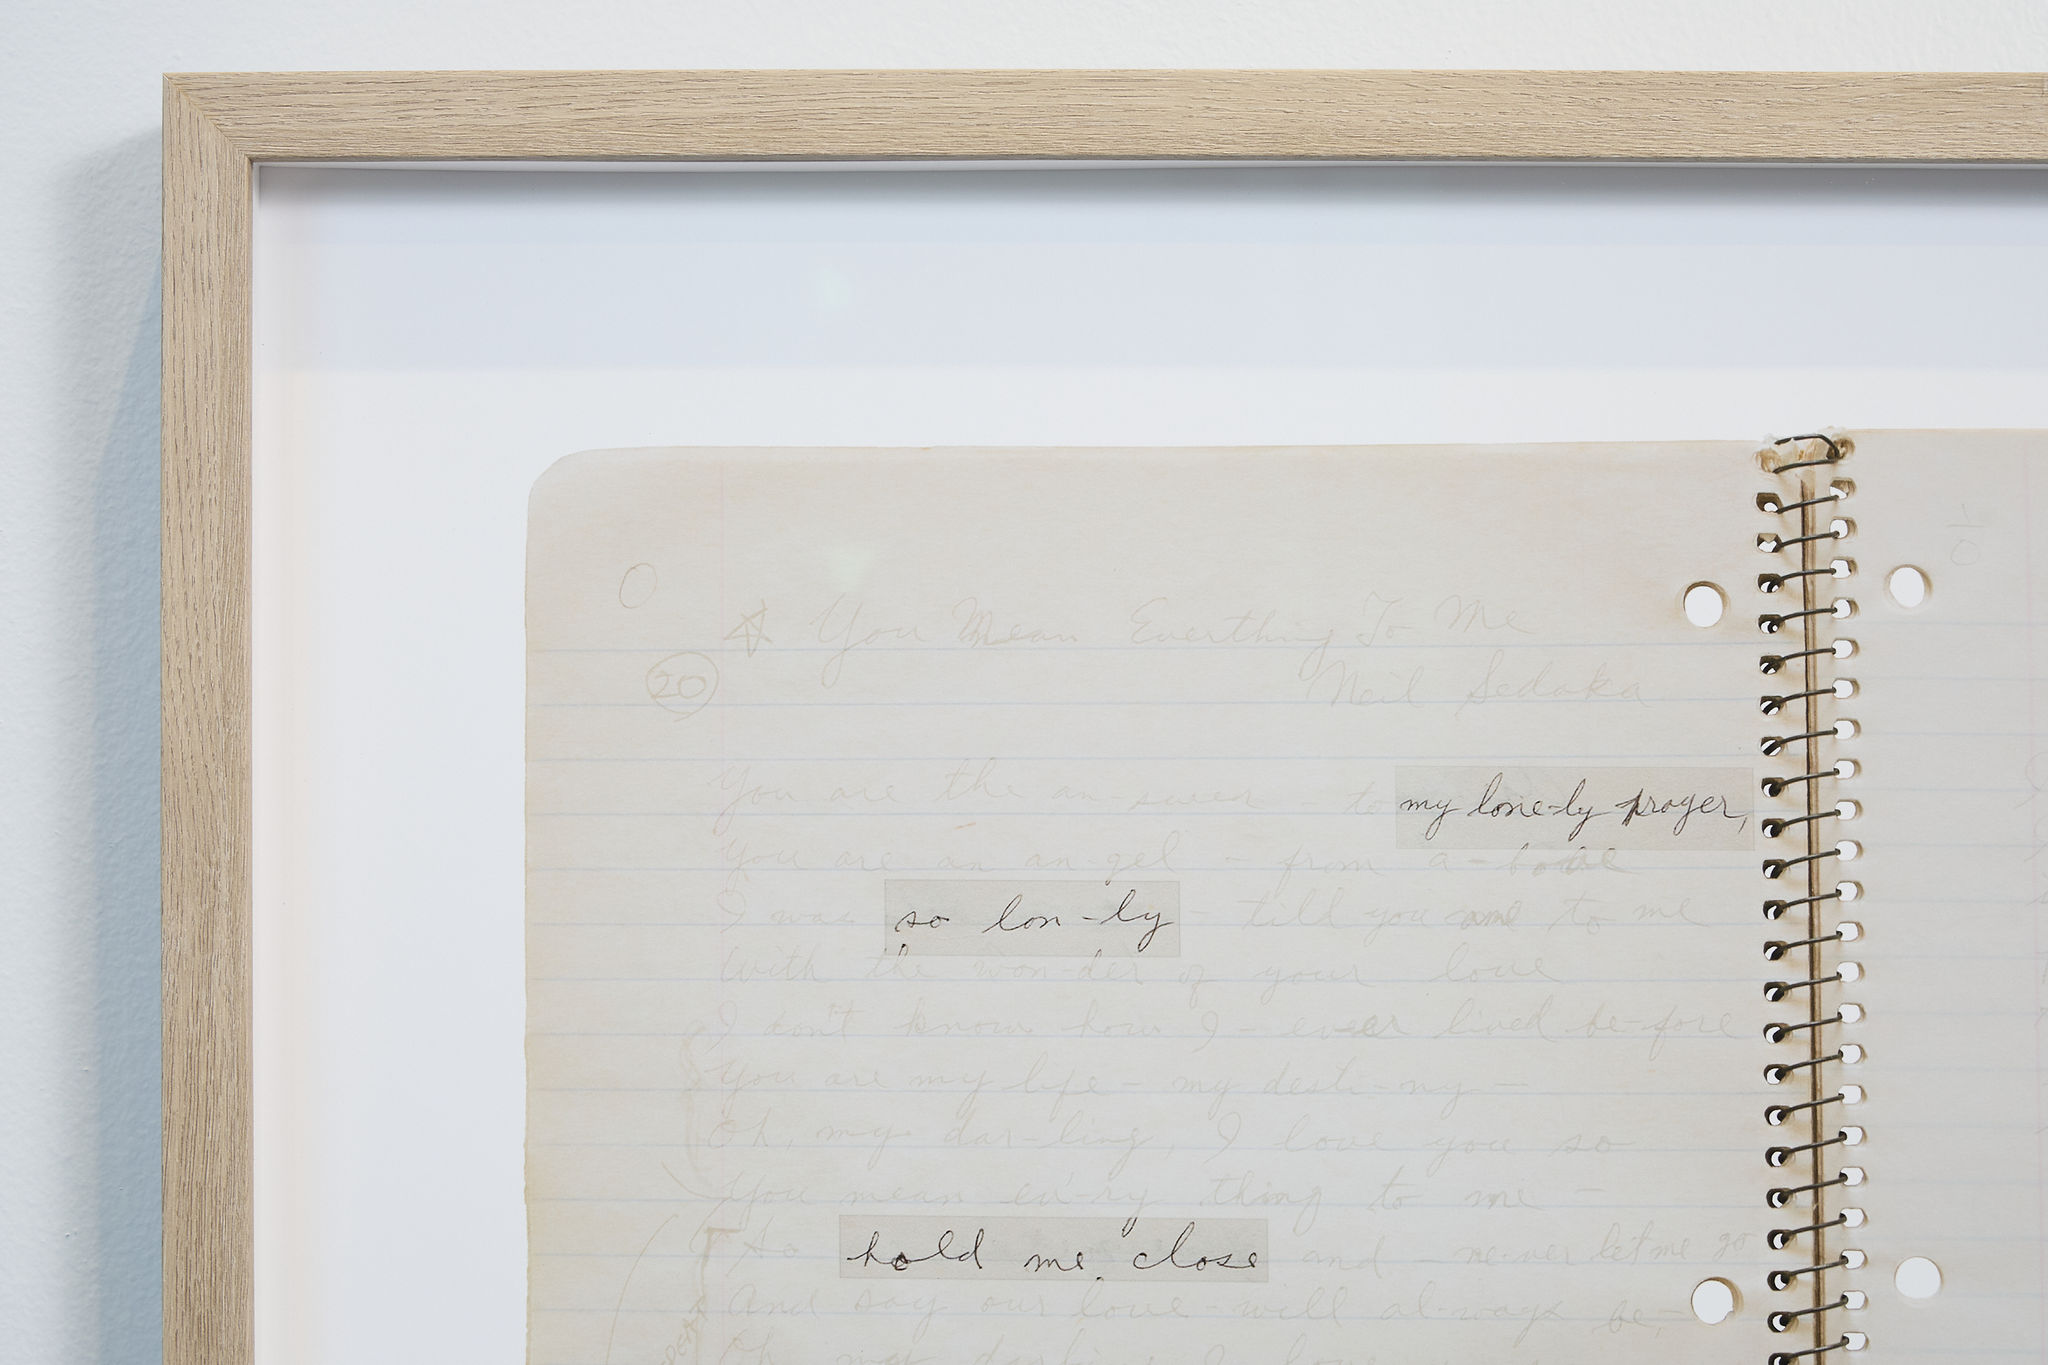 You Mean Everthing To Me
20
Neil Sedaka
You are the an-swer - to my lone-ly prayer,
You are an an-gel - from a-bove
I was so lon-ly - till you came to me
With the won-der of your love
I don't know how I - ever lived be-fore
You are my life - my desti-ny -
Oh, my dar-ling, I love you so
You mean ev'-ry thing to me -
So hold me close and - ne-ver let me go
And say our love - will al-ways be,-
Oh my darling I love